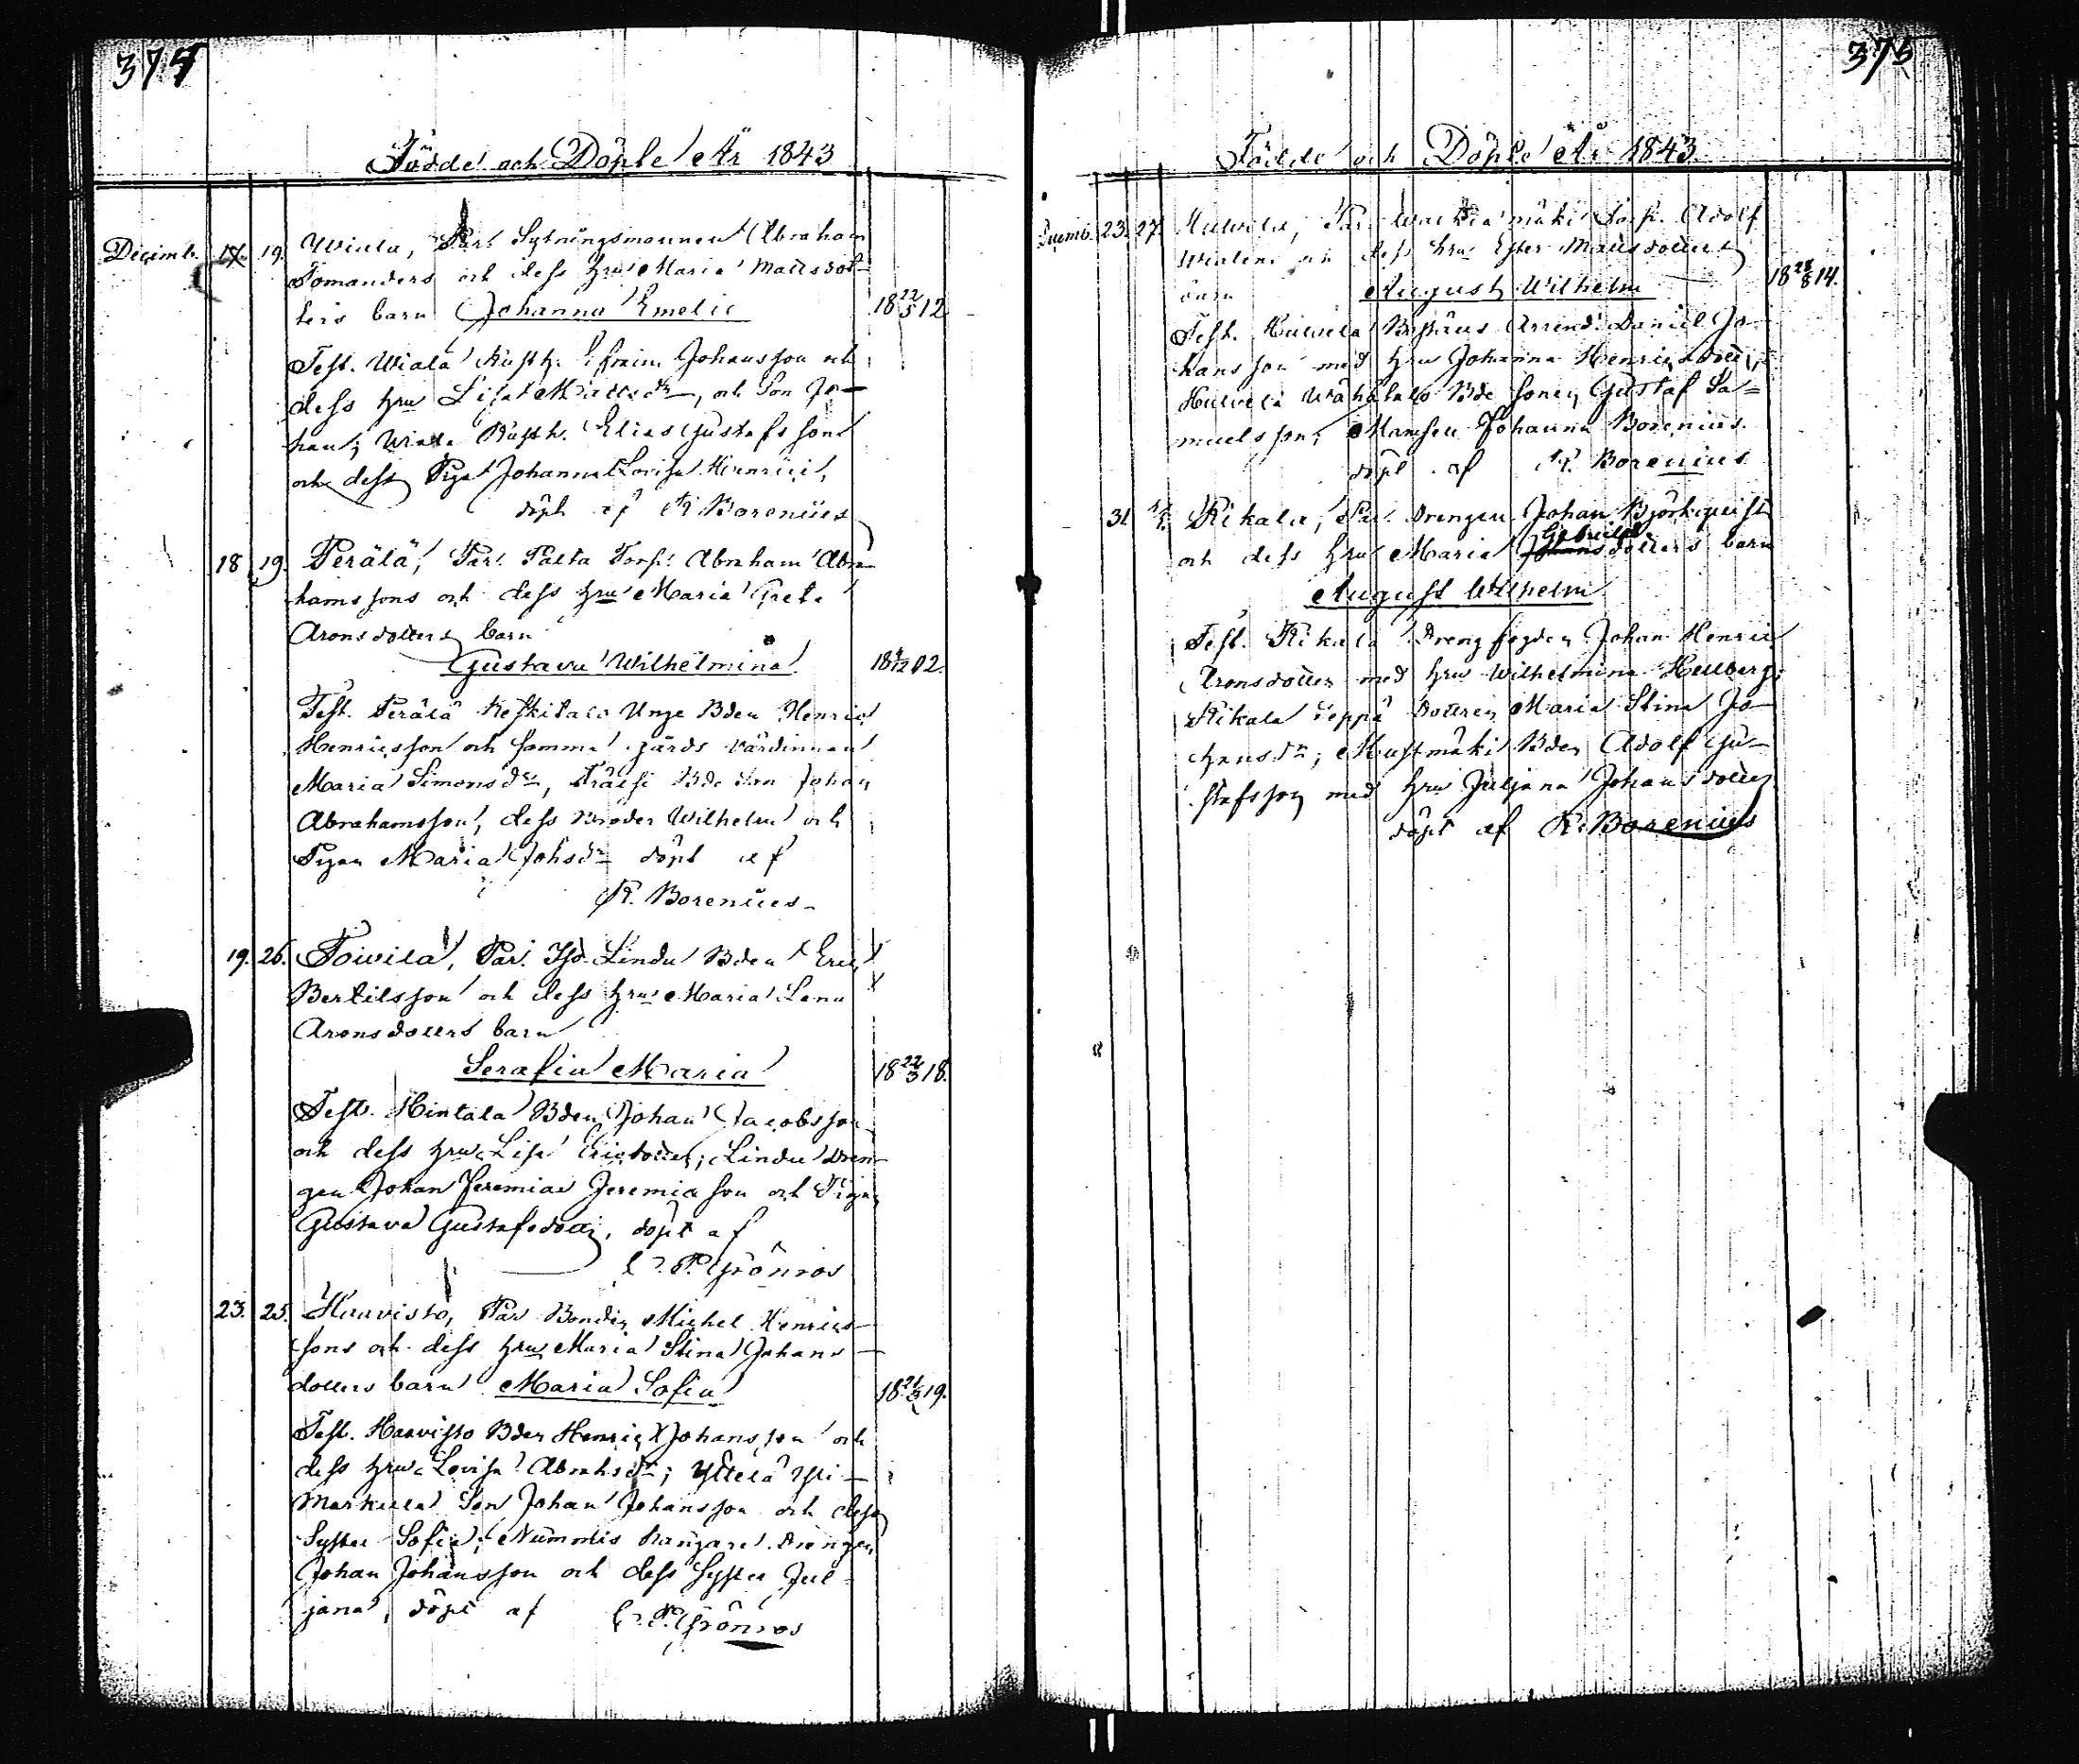 374
Födde och Döpte År 1843
Decemb. 17. 19. Wiala, Par. Sytningsmannen Abraham
Tomanders och dess hru Maria Mattsdot-
ters barn Johanna Emelie 18 22/5 12
Test. Wiala Rusth. Efraim Johansson och
dess hru Lisa Mattsdr, och Son Jo-
han; Wiala Rusth. Elias Gustafssons
och dess Piga Johanna Lovisa Henrici,
döpt af R Borenius
18 19. Perälä, Par. Torp. Abraham Abra-
hamssons och dess hru Maria Greta
Aronsdotters barn
Gustava Wilhelmina 18 02.
Test. Perälä Keskitalo Unge Bden Henric
Henricsson och samma gårds värdinnan
Maria Simonsdr, Bde Son Johan
Abrahamsson, dess Broder Wilhelm och
Pigan Maria Johsdr döpt af
R. Borenius
19. 26. Toivila, Par. Lindu Bden Eric
Bertilsson och dess hru Maria Lena
Aronsdotters barn
Serafia Maria 18 22/3 18.
Test. Hintala Bden Johan Jacobsson
och dess hru Lisa Ericsdotter; Lindu Dren-
gen Johan Jeremias Jeremiason och Pigan
Gustava Gustafsdotter, döpt af
Grönroos
23. 25. Haavisto, Par Bonden Michel Henrics-
sons och dess hru Maria Stina Johans-
dotters barn Maria Sofia 18 21/3 19.
Test. Haavisto Bden Henric Johansson och
dess hru Lovisa Abrahsdr; Ylistelä Yli-
Markula Son Johan Johansson och dess
Syster Sofia; Nummis Drengen
Johan Johansson och dess Syster Jul-
jana, döpt af Grönroos
375
Födde och Döpte År 1843.
Decemb. 23. 27. Huivila, Par Torp. Adolf
och dess hru Ester Mattsdotters
barn August Wilhelm 18 28/8 14.
Test. Huivila Arrend. Daniel Jo-
hansson med hru Johanna Henricsdotter;
Huivila Wähätalo Bde Sonen Gustaf Sa-
muelsson; Mamsell Johanna Borenius.
döpt af R. Borenius
31. Rikala, Par. Drengen Johan Björkqvist
och dess hru Maria Gabriels dotters barn
August Wilhelm
Test. Rikala Drengfogden Johan Henric
med hru Wilhelmina Hellberg;
Rikala Seppä Dottren Maria Stina Jo-
hansdr; Mustmäki Bden Adolf Gu-
stafsson med hru Juljana Johansdotter
döpt af R. Borenius